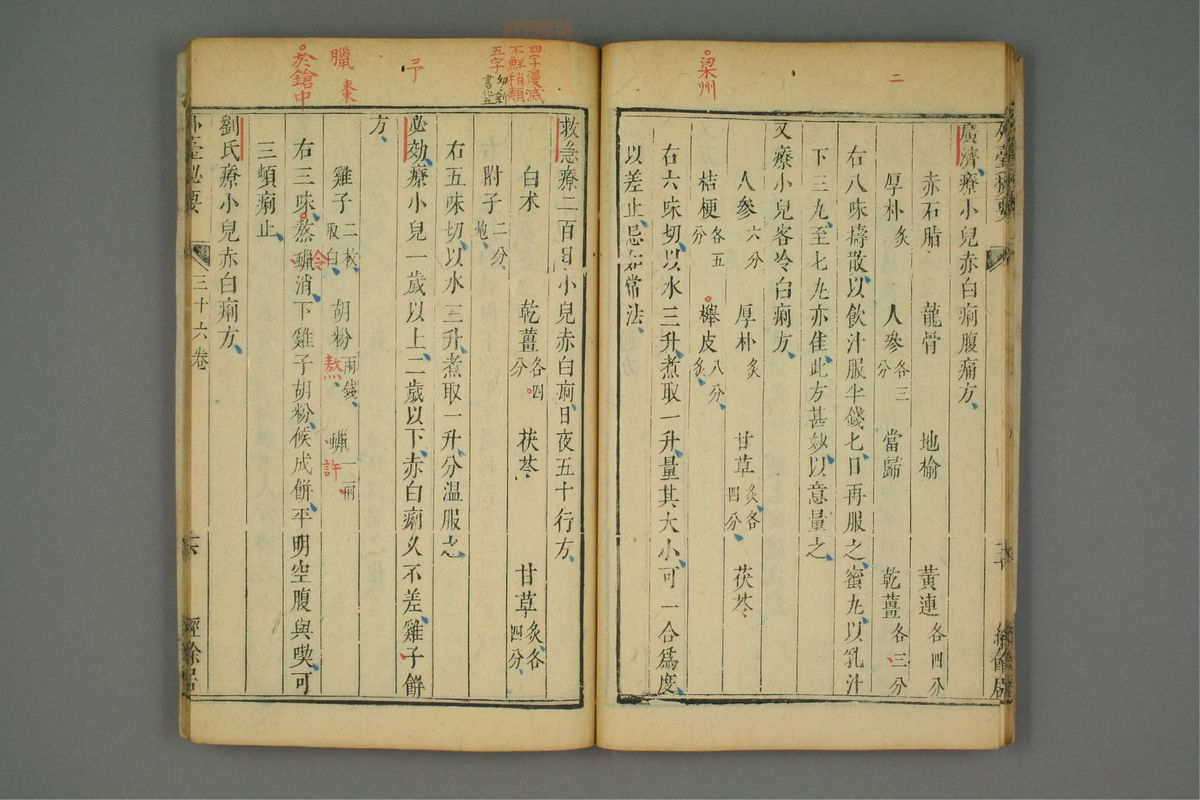 二
梁州
廣濟療小兒赤白痢腹痛方
赤石脂 龍骨 地榆 黃連各四分
厚朴炙 人參各三分 當歸 乾薑各三分
右八味擣散以飲汁服半錢七日再服之蜜丸以乳汁
下三丸至七丸亦佳此方甚妙以意量之
又療小兒客冷白痢方
人參六分 厚朴炙 甘草炙各四分 茯苓
桔梗各五分 櫸皮八分炙
右六味切以水三升煮取一升量其大小可一合爲度
以差止忌如常法
四字漫滅
不鮮稍類
五字
救急療二百日小兒赤白痢日夜五十行方
白朮 乾薑各四分 茯苓 甘草炙各四分
附子二分炮
右五味切以水三升煮取一升分温服之
必効療小兒一歲以上二歲以下赤白痢久不差雞子餅
方
臘
棗
於鎗中
雞子二枚取白 胡粉兩錢熬 蠟一兩許
右三味熬蠟消下雞子胡粉候成餅平明空腹與喫可
三頓痢止
劉氏療小兒赤白痢方
外臺秘要 三十六卷 經餘居